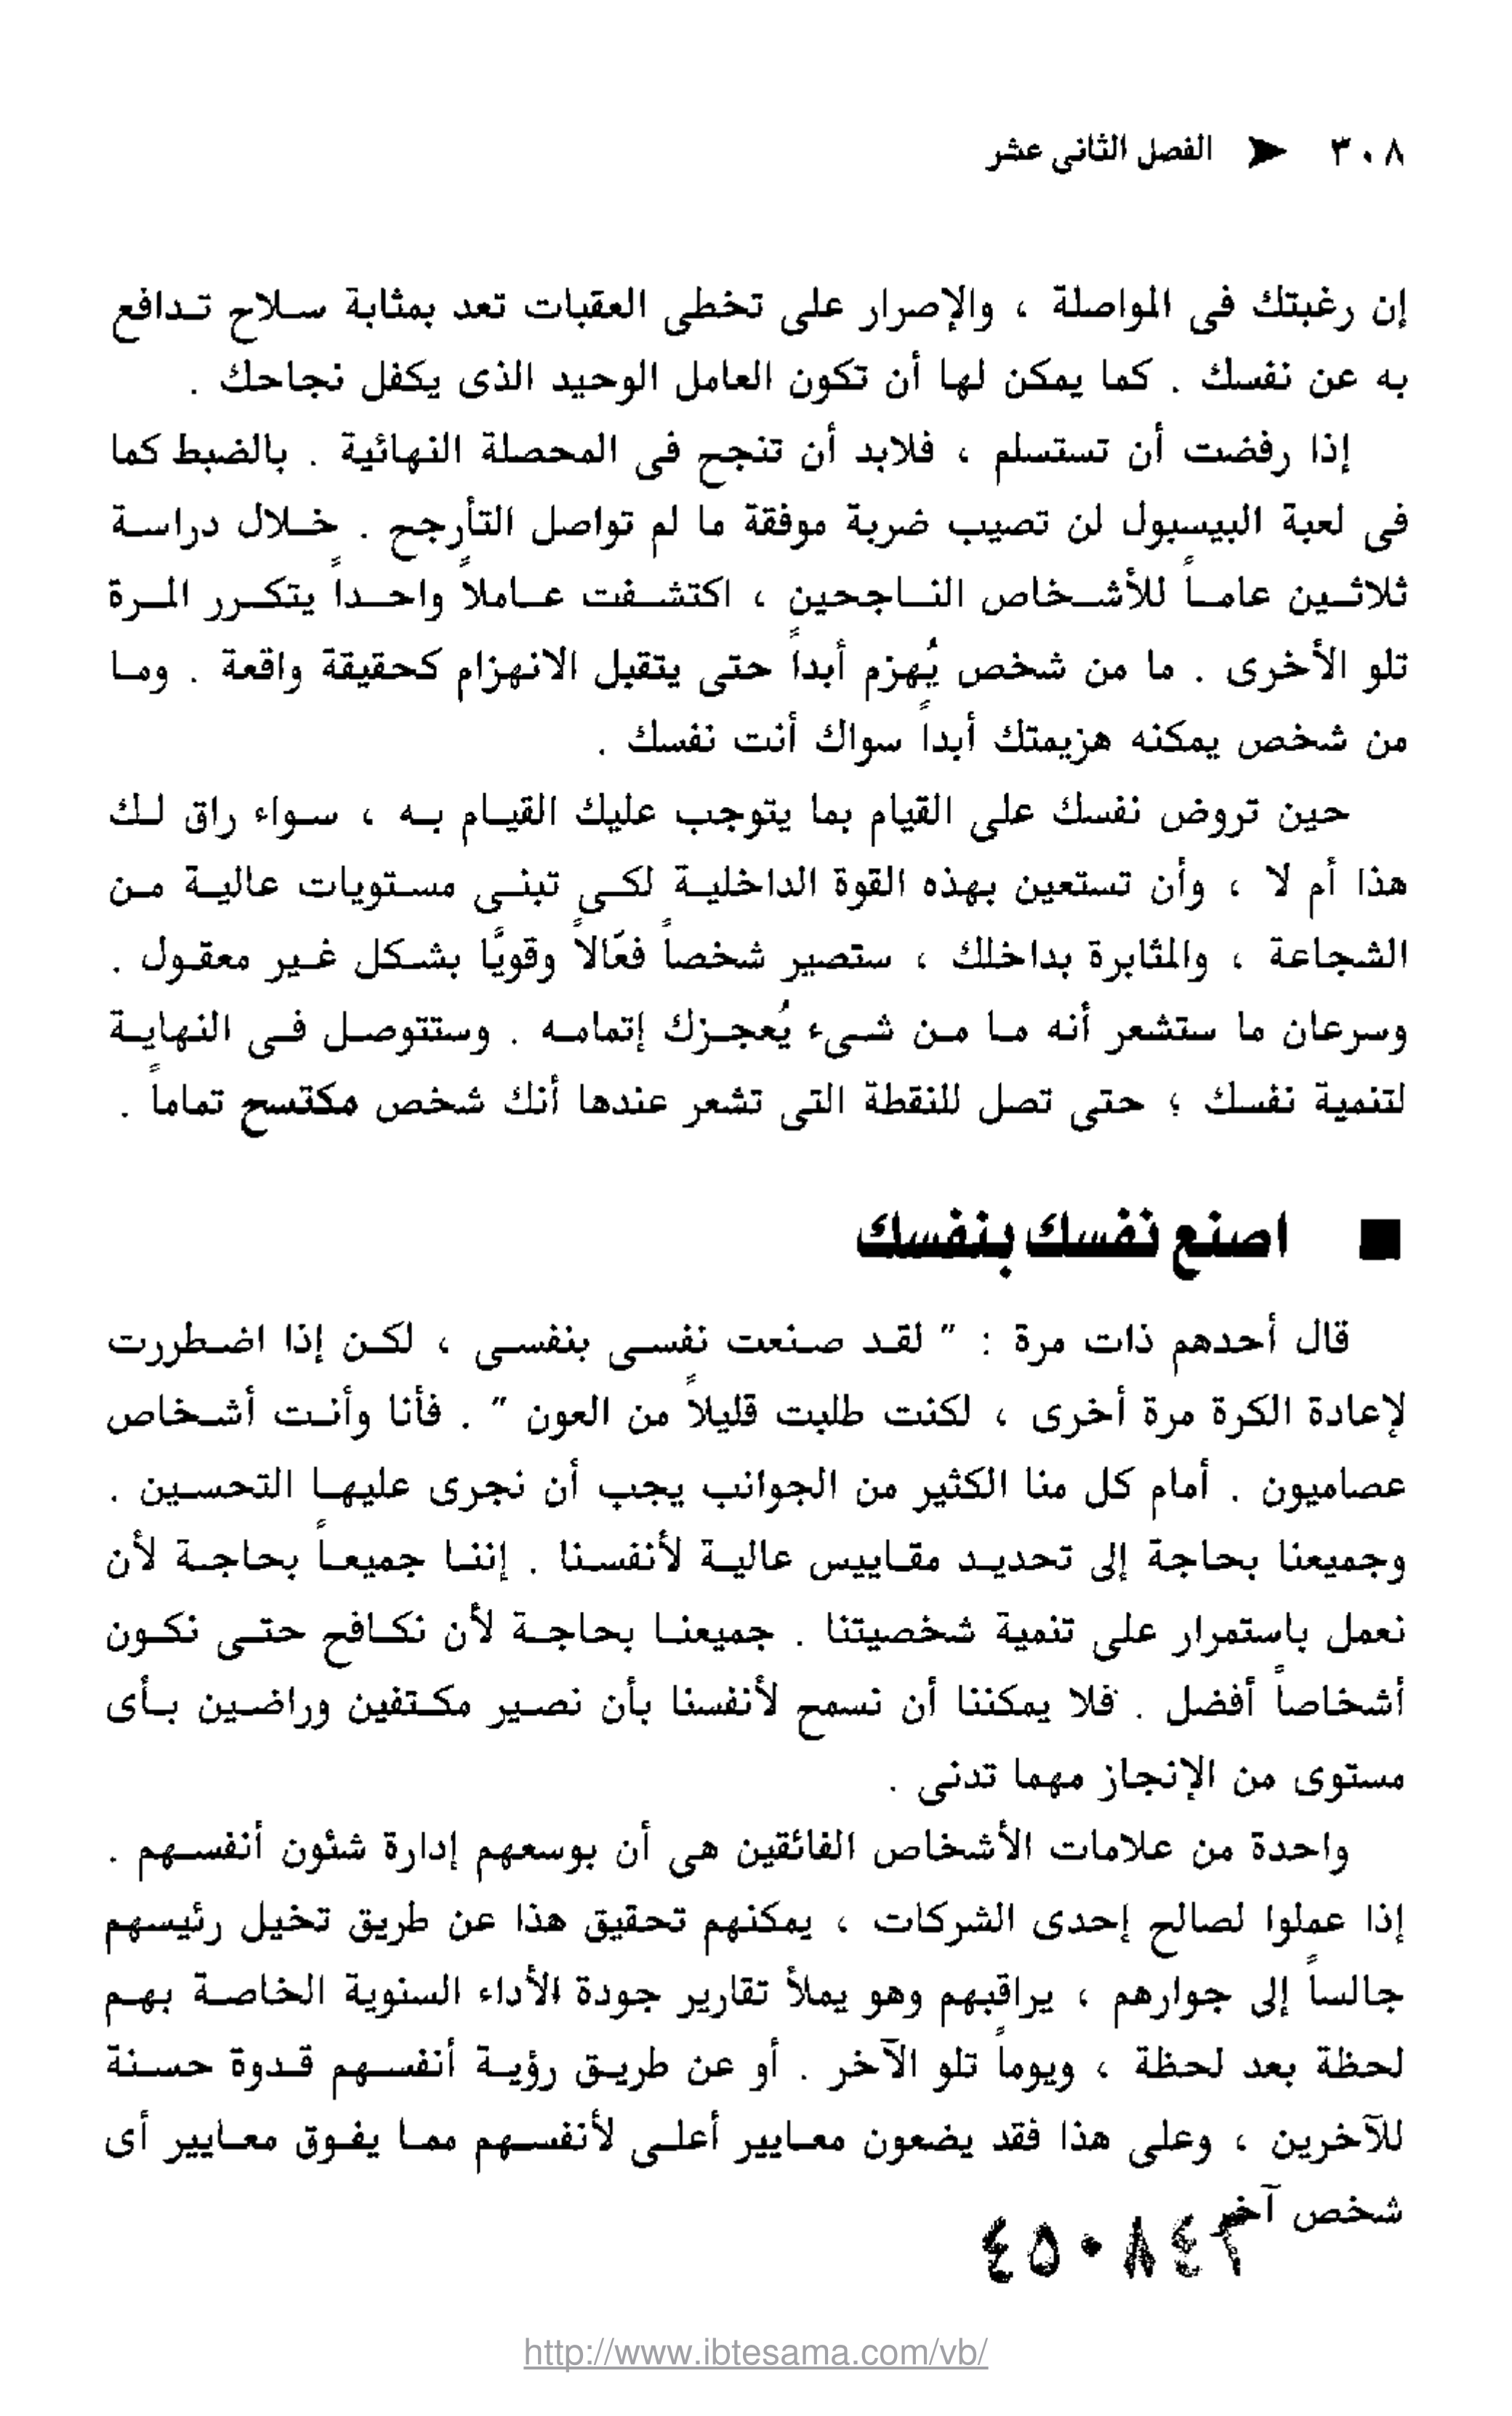 ٣٠٨ ➤ الفصل الثانى عشر
إن رغبتك فى المواصلة ، والإصرار على تخطى العقبات تعد بمثابة سلاح تدافع
به عن نفسك . كما يمكن لها أن تكون العامل الوحيد الذى يكفل نجاحك .
إذا رفضت أن تستسلم ، فلابد أن تنجح فى المحصلة النهائية . بالضبط كما
فى لعبة البيسبول لن تصيب ضربة موفقة ما لم تواصل التأرجح . خلال دراسة
ثلاثين عاماً للأشخاص الناجحين ، اكتشفت عاملاً واحداً يتكرر المرة
تلو الأخرى . ما من شخص يُهزم أبداً حتى يتقبل الانهزام كحقيقة واقعة . وما
من شخص يمكنه هزيمتك أبداً سواك أنت نفسك .
حين تروض نفسك على القيام بما يتوجب عليك القيام به ، سواء راق لك
هذا أم لا ، وأن تستعين بهذه القوة الداخلية لكى تبنى مستويات عالية من
الشجاعة ، والمثابرة بداخلك ، ستصير شخصاً فعّالاً وقويًّا بشكل غير معقول .
وسرعان ما ستشعر أنه ما من شىء يُعجزك إتمامه . وستتوصل فى النهاية
لتنمية نفسك ؛ حتى تصل للنقطة التى تشعر عندها أنك شخص مكتسح تماماً .
■ اصنع نفسك بنفسك
قال أحدهم ذات مرة : " لقد صنعت نفسى بنفسى ، لكن إذا اضطررت
لإعادة الكرة مرة أخرى ، لكنت طلبت قليلاً من العون " . فأنا وأنت أشخاص
عصاميون . أمام كل منا الكثير من الجوانب يجب أن نجرى عليها التحسين .
وجميعنا بحاجة إلى تحديد مقاييس عالية لأنفسنا . إننا جميعاً بحاجة لأن
نعمل باستمرار على تنمية شخصيتنا . جميعنا بحاجة لأن نكافح حتى نكون
أشخاصاً أفضل . فلا يمكننا أن نسمح لأنفسنا بأن نصير مكتفين وراضين بأى
مستوى من الإنجاز مهما تدنى .
واحدة من علامات الأشخاص الفائقين هى أن بوسعهم إدارة شئون أنفسهم .
إذا عملوا لصالح إحدى الشركات ، يمكنهم تحقيق هذا عن طريق تخيل رئيسهم
جالساً إلى جوارهم ، يراقبهم وهو يملأ تقارير جودة الأداء السنوية الخاصة بهم
لحظة بعد لحظة ، ويوماً تلو الآخر . أو عن طريق رؤية أنفسهم قدوة حسنة
للآخرين ، وعلى هذا فقد يضعون معايير أعلى لأنفسهم مما يفوق معايير أى
شخص آخر
http://www.ibtesama.com/vb/